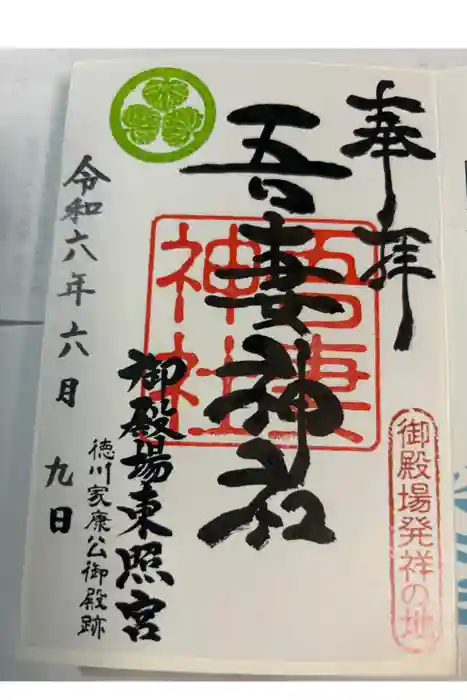 奉拝
御殿場発祥の地
吾妻神社
吾妻神社
御殿場東照宮
徳川家康公御殿跡
令和六年六月九日